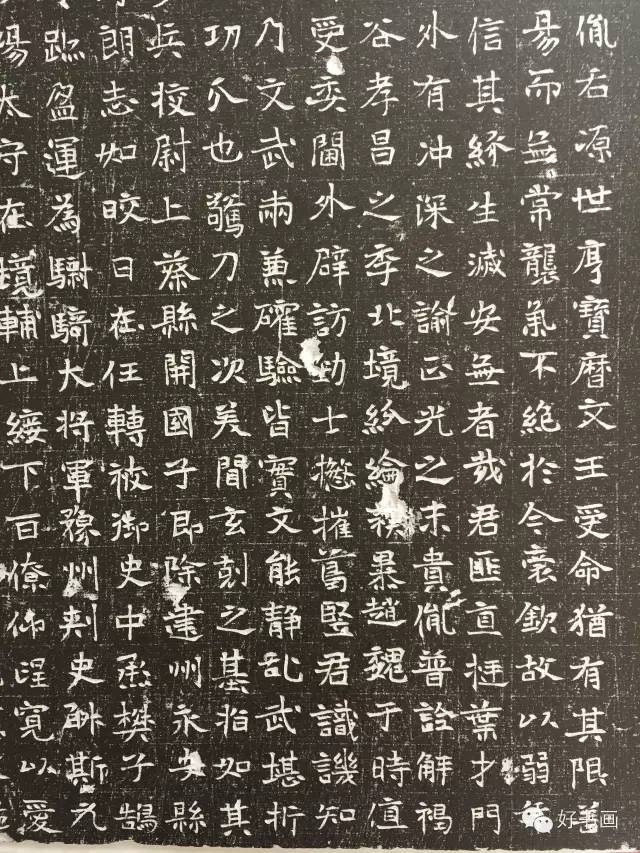 胤右源世厚寶曆文王受命猶有其限
易而無常襲氣不絕於今袁欽故以弱
信其緣生滅安無者哉君匪直挺葉才門
外有沖深之諭正光之末貴胤普詮解褐
谷孝昌之季北境紛綸暴趙魏于時值
受委閫外辟訪勁士摧萬竪君識譏知
乃文武兩兼確驗皆實文能静乱武堪折
功分也驚刀之次美聞玄刻之基指如其
兵挍尉上蔡縣開國子郎除建州永安縣
朗志如皎日在任轉被御史中樊子鵠
盈運為驃騎大將軍豫州刺史斯九
陽太守在境輔上綏下百僚寬以愛
好書画